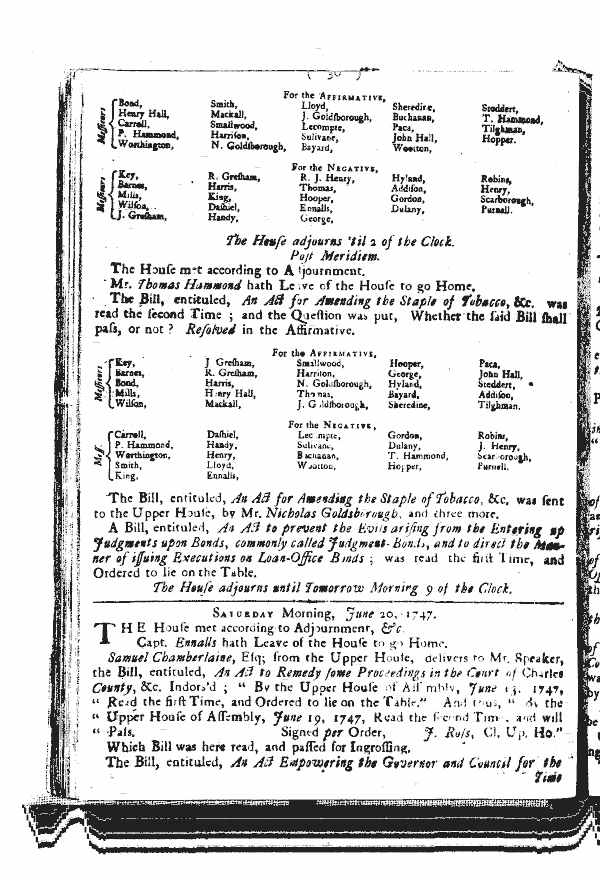 ( 30 )
For the AFFIRMATIVE,
Messieurs
Bond, Smith, Lloyd, Sheredine, Stoddert,
Henry Hall, Mackall, J. Goldſborough, Buchanan, T. Hammond,
Carroll, Smallwood, Lecompte, Paca, Tilghman,
P. Hammond, Harriſon, Sulivane, John Hall, Hopper.
Worthington, N. Goldſborough, Bayard, Wootton,
For the NEGATIVE,
Messieurs
Key, R. Greſham, R. J. Henry, Hyland, Robins,
Barnes, Harris, Thomas, Addiſon, Henry,
Mills, King, Hooper, Gordon, Scarborough,
Wilſon, Daſhiel, Ennalls, Dulany, Purnell.
J. Greſham, Handy, George,
The Houſe adjourns 'til 2 of the Clock.
Poſt Meridiem.
The Houſe met according to Adjournment.
Mr. Thomas Hammond hath Leave of the Houſe to go Home.
The Bill, entituled, An Act for Amending the Staple of Tobacco, &c. was
read the ſecond Time ; and the Queſtion was put, Whether the ſaid Bill ſhall
paſs, or not ? Reſolved in the Affirmative.
For the AFFIRMATIVE,
Messieurs
Key, J Greſham, Smallwood, Hooper, Paca,
Barnes, R. Greſham, Harriſon, George, John Hall,
Bond, Harris, N. Goldſborough, Hyland, Stoddert,
Mills, Henry Hall, Thomas, Bayard, Addiſon,
Wilſon, Mackall, J. Goldſborough, Sheredine, Tilghman.
For the NEGATIVE,
Meſſ.
Carroll, Daſhiel, Lecompte, Gordon, Robins,
P. Hammond, Handy, Sulivane, Dulany, J. Henry,
Worthington, Henry, Buchanan, T. Hammond, Scarborough,
Smith, Lloyd, Wootton, Hopper, Purnell.
King, Ennalls,
The Bill, entituled, An Act for Amending the Staple of Tobacco, &c. was ſent
to the Upper Houſe, by Mr. Nicholas Goldsborough, and three more.
A Bill, entituled, An Act to prevent the Evils ariſing from the Entering up
Judgments upon Bonds, commonly called Judgment-Bonds, and to direct the Man-
ner of iſſuing Executions on Loan-Office Bonds ; was read the firſt Time, and
Ordered to lie on the Table.
The Houſe adjourns until Tomorrow Morning 9 of the Clock.
SATURDAY Morning, June 20, 1747.
THE Houſe met according to Adjournment, &c.
Capt. Ennalls hath Leave of the Houſe to go Home.
Samuel Chamberlaine, Eſq; from the Upper Houſe, delivers to Mr. Speaker,
the Bill, entituled, An Act to Remedy ſome Proceedings in the Court of Charles
County, &c. Indors'd ; " By the Upper Houſe of Aſſembly, June 13, 1747,
" Read the firſt Time, and Ordered to lie on the Table." And thus, " By the
" Upper Houſe of Aſſembly, June 19, 1747, Read the ſecond Time, and will
" Paſs. Signed per Order, J. Roſs, Cl. Up. Ho."
Which Bill was here read, and paſſed for Ingroſſing.
The Bill, entituled, An Act Empowering the Governor and Council for the
Time